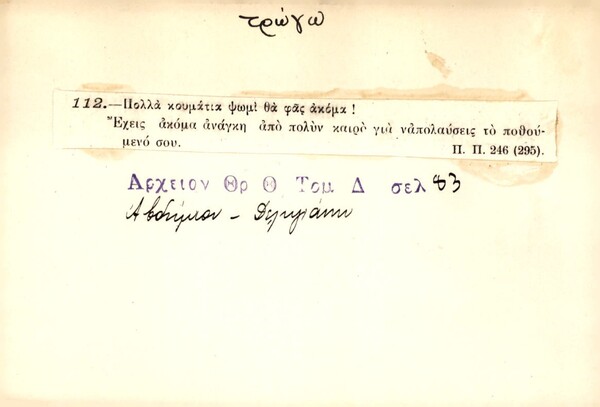 τρώγω
112.—Πολλὰ κουμάτια ψωμὶ θὰ φᾷς ἀκόμα !
Ἔχεις ἀκόμα ἀνάγκη ἀπὸ πολὺν καιρὸ γιὰ ναπολαύσεις τὸ ποθού-
μενό σου. Π. Π. 246 (295).
Αρχειον Θρ Θ Τομ Δ σελ 83